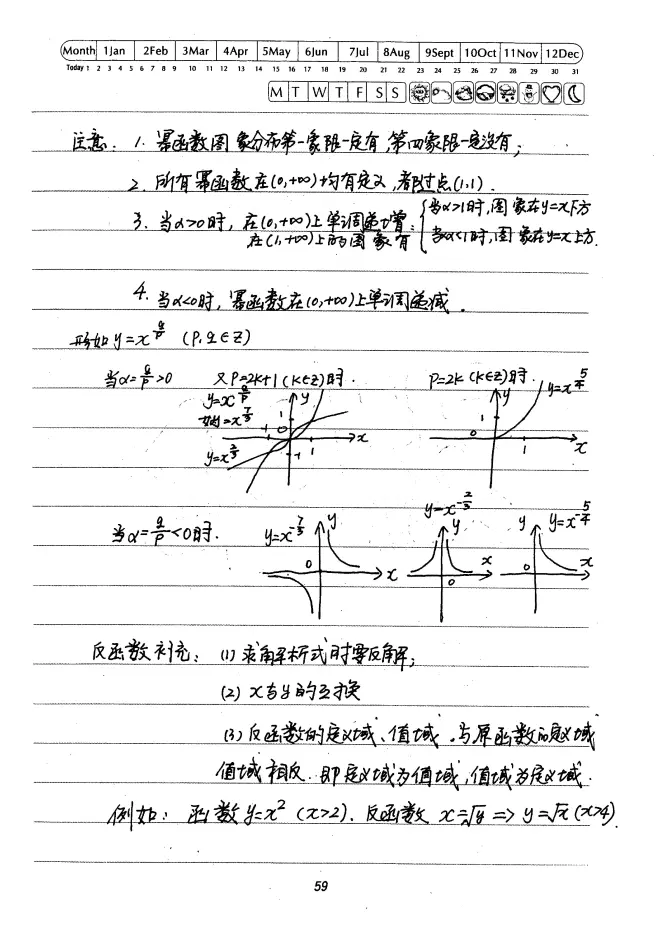 Month 1Jan 2Feb 3Mar 4Apr 5May 6Jun 7Jul 8Aug 9Sept 10Oct 11Nov 12Dec
Today 1 2 3 4 5 6 7 8 9 10 11 12 13 14 15 16 17 18 19 20 21 22 23 24 25 26 27 28 29 30 31
M T W T F S S
注意: 1. 幂函数图象分布第一象限一定有,第四象限一定没有;
2. 所有幂函数在(0,+∞)均有定义,都过点(1.1).
3. 当α>0时,在(0,+∞)上单调递增;
在(1,+∞)上的图象有
当α>1时,图象在y=x下方
当α<1时,图象在y=x上方.
4. 当α<0时,幂函数在(0,+∞)上单调递减.
形如y=x^(q/p) (p,q∈Z)
当α=q/p>0 又P=2k+1(k∈Z)时. P=2k(k∈Z)时.
y=x^(q/p)
如y=x^(7/3)
y=x^(2/3)
y 1 0 -1 1 -1 x
y=x^(5/4) y 1 0 1 x
当α=q/p<0时.
y=x^(-7/3) y 0 x
y=x^(-2/3) y 0 x
y=x^(-5/4) y 0 x
反函数补充: (1) 求解析式时要反解;
(2) x与y的互换
(3) 反函数的定义域、值域.与原函数的定义域
值域相反.即定义域为值域,值域为定义域.
例如: 函数y=x² (x>2). 反函数 x=√y => y=√x (x>4).
59